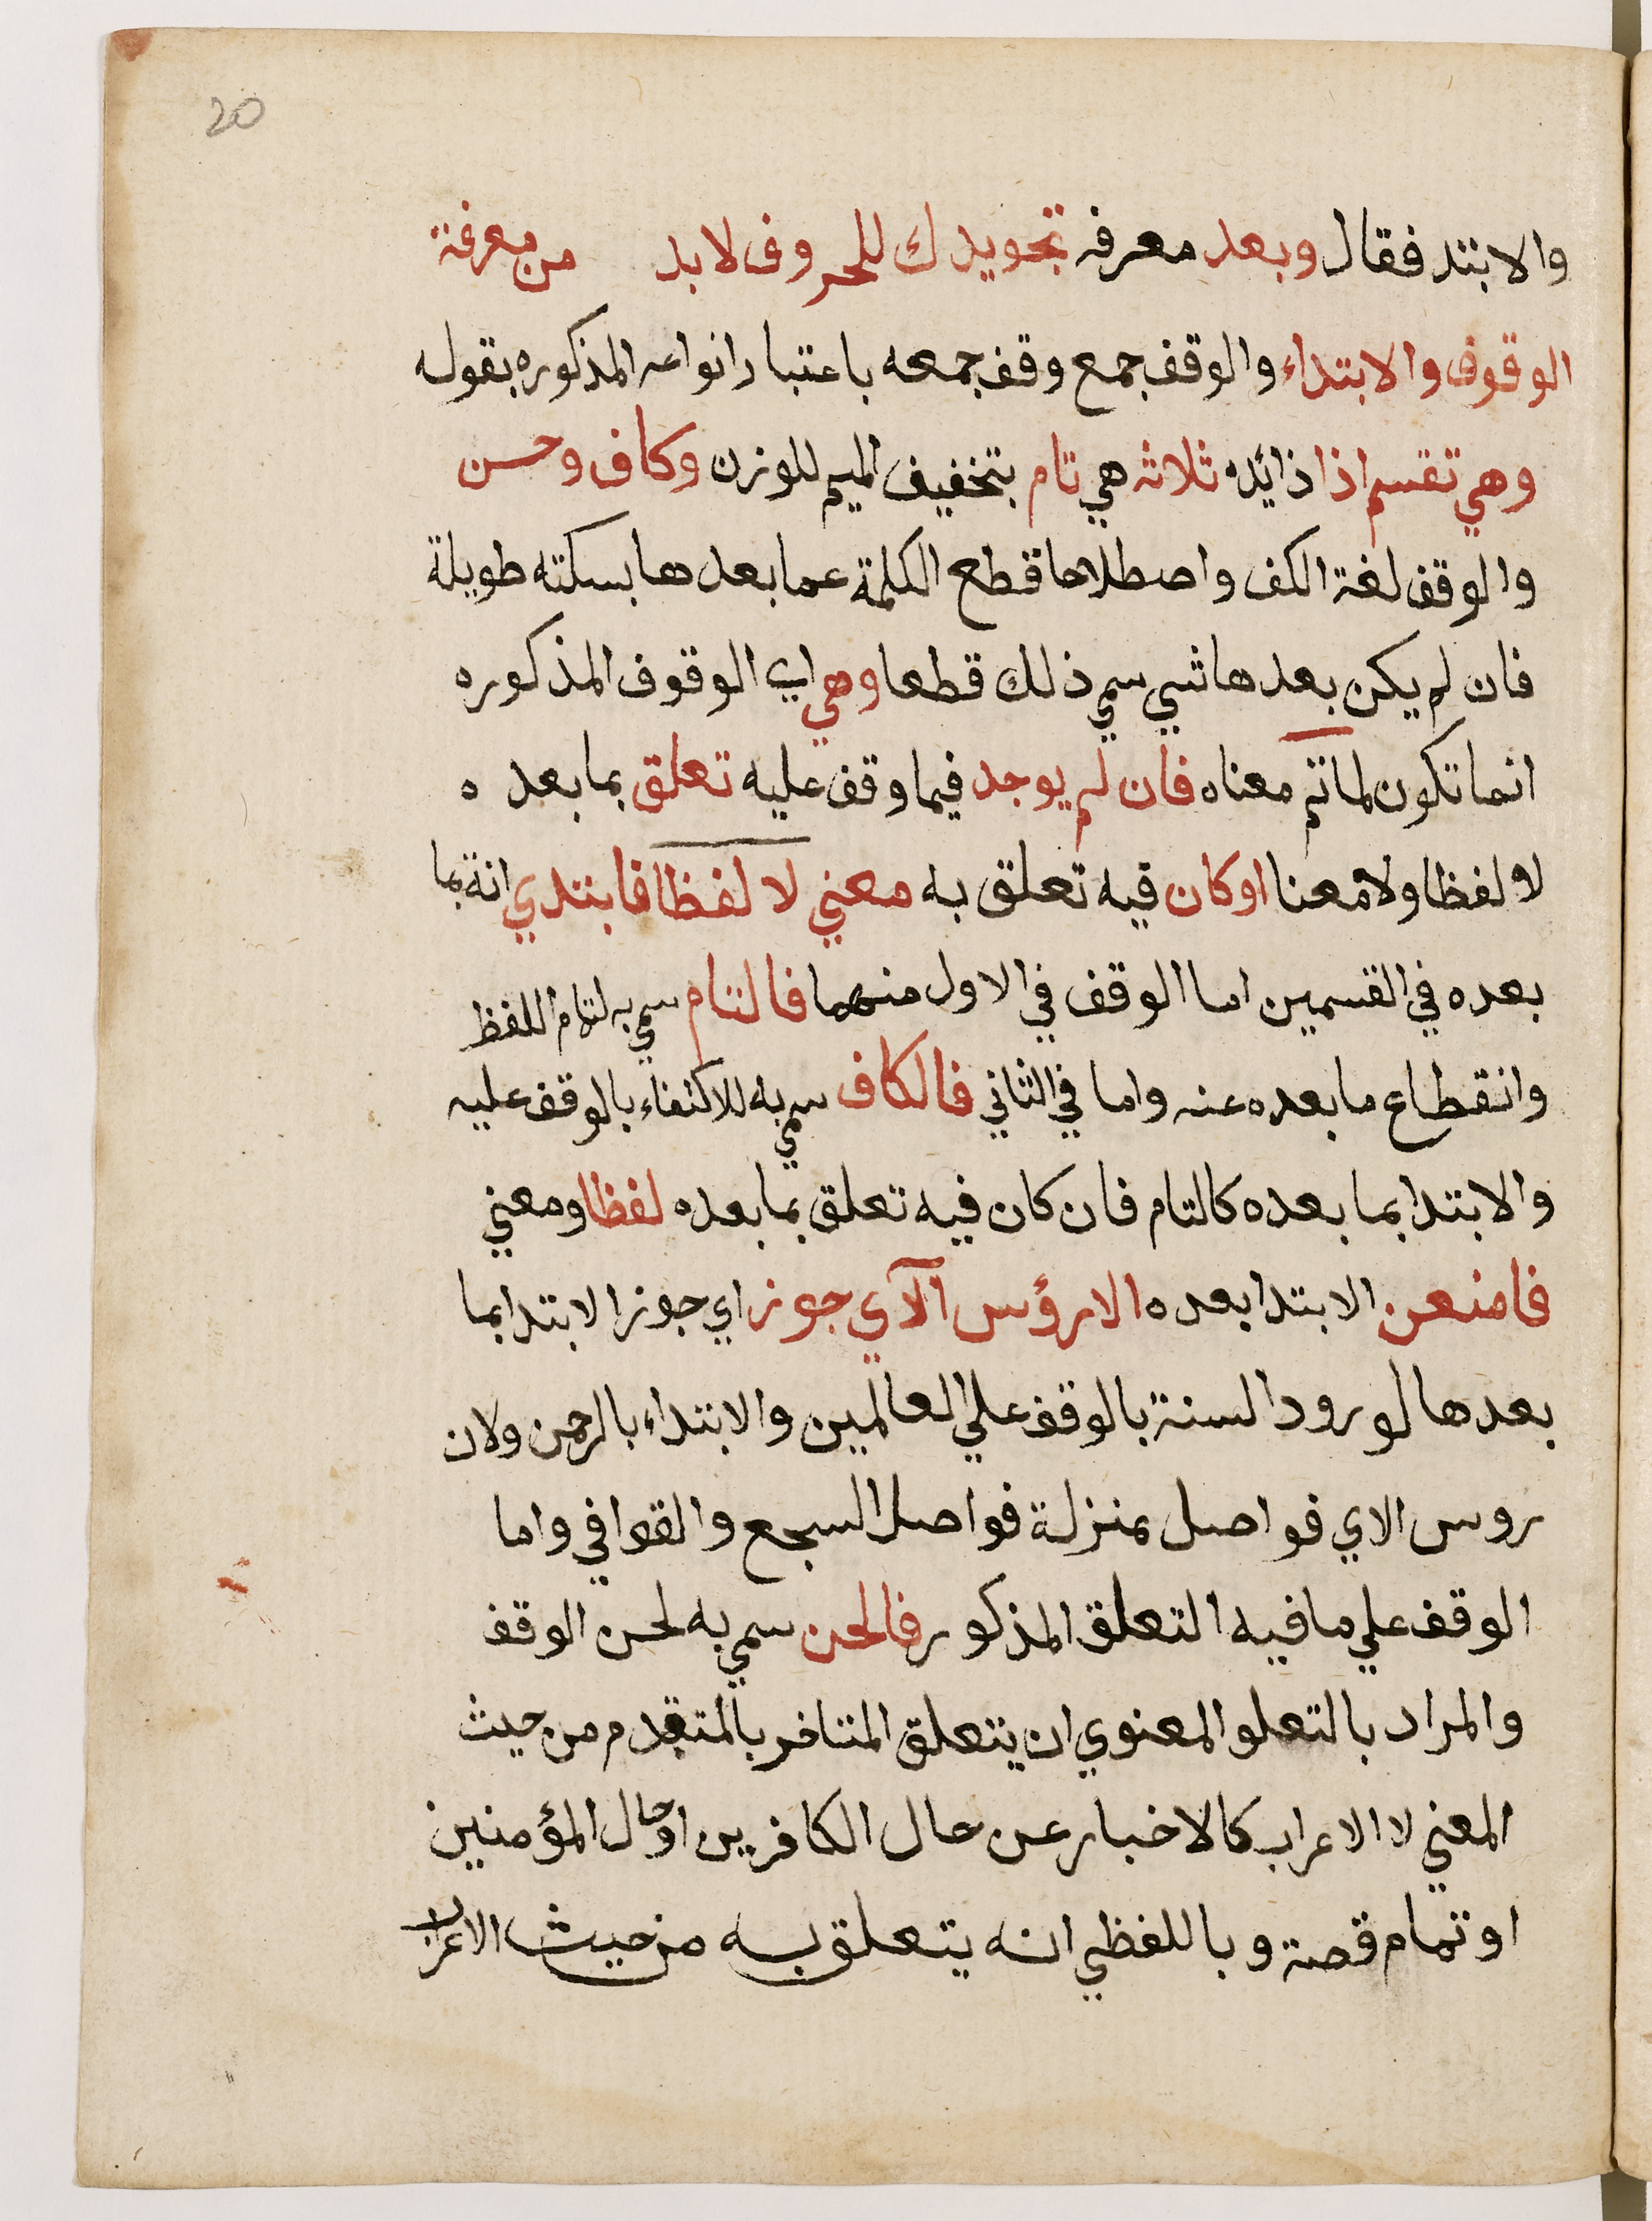 20
والابتد فقال وبعد معرفه تجويدك للحروف لا بد من معرفة
الوقوف والابتداء والوقف جمع وقف جمعه باعتبار انواعه المذكوره بقوله
وهي تقسم اذا ذائده ثلاثه هي تام بتخفيف الميم للوزن وكاف وحسن
والوقف لغة الكف واصطلاحا قطع الكلمة عما بعدها بسكته طويلة
فان لم يكن بعدها شي سمي ذلك قطعا وهي اي الوقوف المذكوره
انما تكون لما تم معناه فان لم يوجد فيما وقف عليه تعلق بما بعده
لا لفظا ولا معنا او كان فيه تعلق به معني لا لفظا فابتدي انة بما
بعده في القسمين اما الوقف في الاول منهما فالتام سمي به لتمام اللفظ
وانقطاع ما بعده عنه واما في الثاني فالكاف سمي به للاكتفاء بالوقف عليه
والابتدا بما بعده كالتام فان كان فيه تعلق بما بعده لفظا ومعني
فامنعن الابتدا بعده الا رؤس الآي جوز اي جوز الابتدا بما
بعدها لورود السنة بالوقف علي العالمين والابتداء بالرحمن ولان
روس الاي فواصل بمنزلة فواصل السجع والقوافي واما
الوقف علي ما فيه التعلق المذكور فالحسن سمي به لحسن الوقف
والمراد بالتعلو المعنوي ان يتعلق المتاخر بالمتقدم من حيث
المعني لا الاعراب كالاخبار عن حال الكافرين او حال المؤمنين
او تمام قصة وباللفظي انه يتعلق به من حيث الاعراب